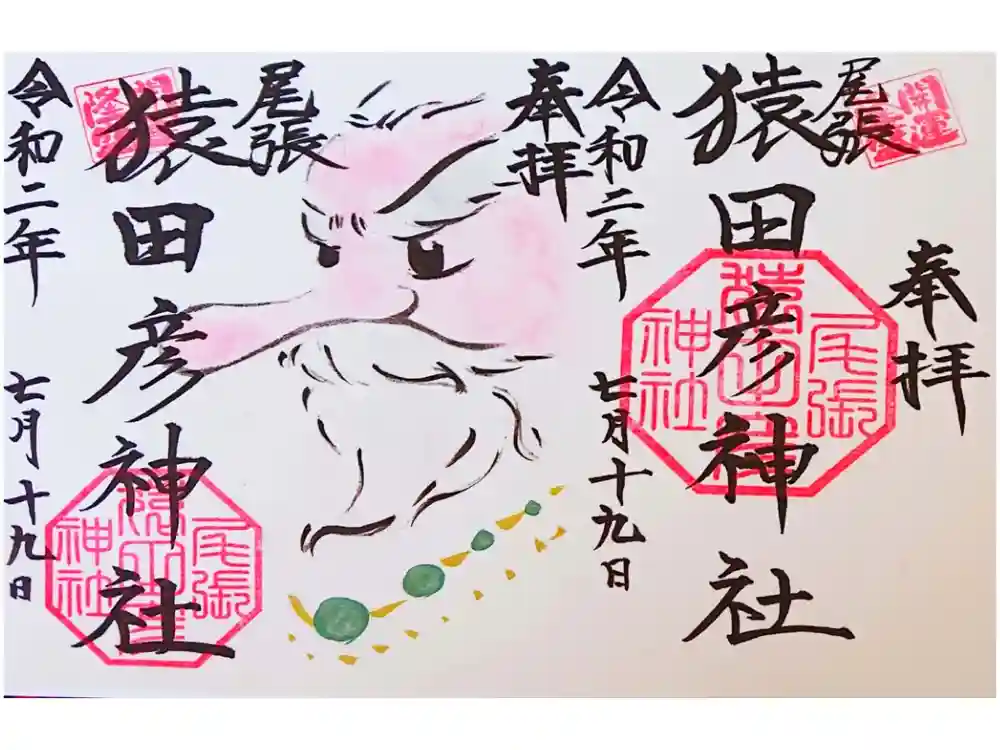 奉拝
尾張
猿田彦神社
令和二年 七月十九日
開運
尾張
猿田彦
神社
奉拝
尾張
猿田彦神社
令和二年 七月十九日
尾張
猿田彦
神社